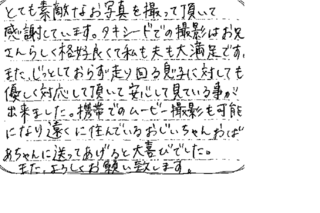 とても素敵なお写真を撮って頂いて
感謝しています。タキシードでの撮影はお兄
さんらしく格好良くて私も夫も大満足です。
また、じっとしておらず走り回る息子に対しても
優しく対応して頂いて安心して見ている事が
出来ました。携帯でのムービー撮影も可能
になり遠くに住んでいるおじいちゃんおば
あちゃんに送ってあげると大喜びでした。
また、よろしくお願い致します。